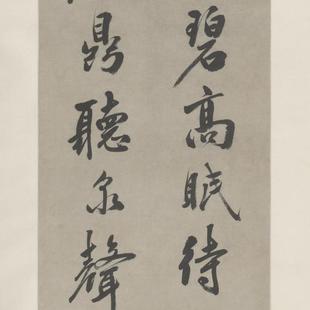 碧高眠待
鼎聽泉聲